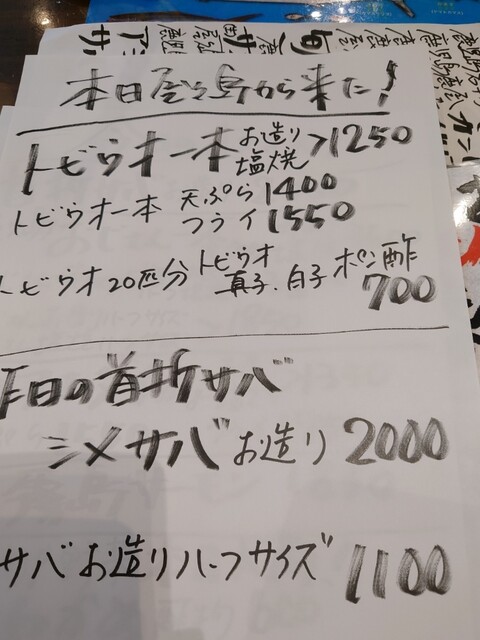 本日屋久島から来た!
トビウオ一本 お造り 塩焼 >1250
トビウオ一本 天ぷら 1400
フライ 1550
トビウオ20匹分 トビウオ真子、白子 ポン酢 700
昨日の首折サバ
シメサバお造り 2000
サバお造りハーフサイズ 1100